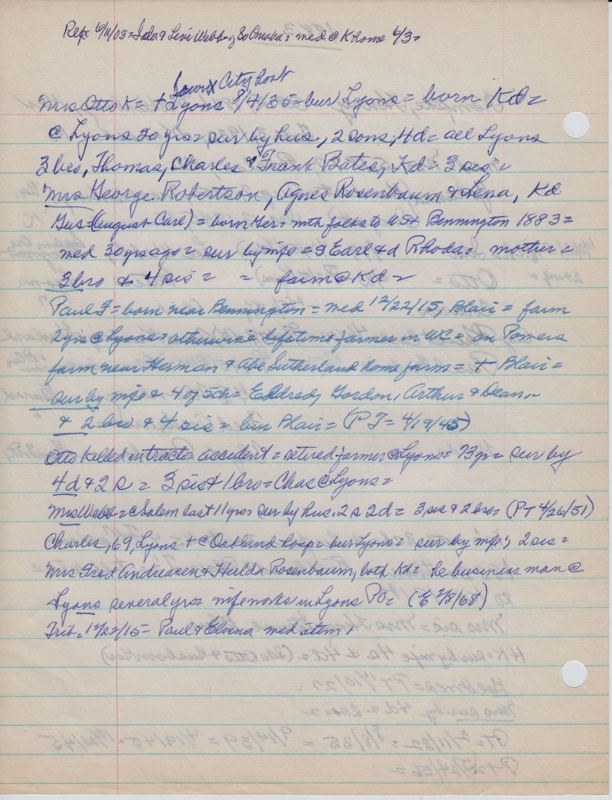 Rep= 6/11/03= Ida & Levi Webb of So Omaha= med @ K home 6/3=
Sioux City hosp
Mrs Otto K= + Lyons 8/4/35= bur Lyons= born Kd=
@ Lyons 20 yrs= sur by hus, 2 sons, 4d= all Lyons
3 bro, Thomas, Charles & Frank Bates, Kd= 3 sis=
Mrs George Robertson, Agnes Rosenbaum & Lena, Kd
Gus= (August Carl) = born Ger= mth folks to US & Bennington 1883=
med 30 yrs ago= sur by mfe= s Earl & d Rhoda= mother=
3 bro & 4 sis= = farm @ Kd=
Paul F= born near Bennington= med 12/22/15, Blair= farm
2 yrs @ Lyons= otherwise lifetime farmer in WC= on Powers
farm near Herman & Abe Sutherland home farm= + Blair=
sur by mfe & 4 of 5 ch= Gordon, Arthur & Dean,
& 2 bro & 4 sis= bur Blair= (PT= 4/19/45)
Otto killed in tractor accident= retired farmer @ Lyons= 73 yr= sur by
4d & 2s= 3 sis & 1 bro= Chas @ Lyons=
Mrs Webb= @ Salem last 11 yrs= sur by hus. 2s 2d= 3 sis & 2 bro= (PT 4/26/51)
Charles, 69, Lyons + @ Oakland hosp= bur Lyons= sur by mfe; 2 sis=
Mrs Fred Andreasen & Hulda Rosenbaum, both Kd= he business man @
Lyons several yrs= mfe works in Lyons PO= (E 2/8/68)
Trib= 12/22/15= Paul & Elvena med item